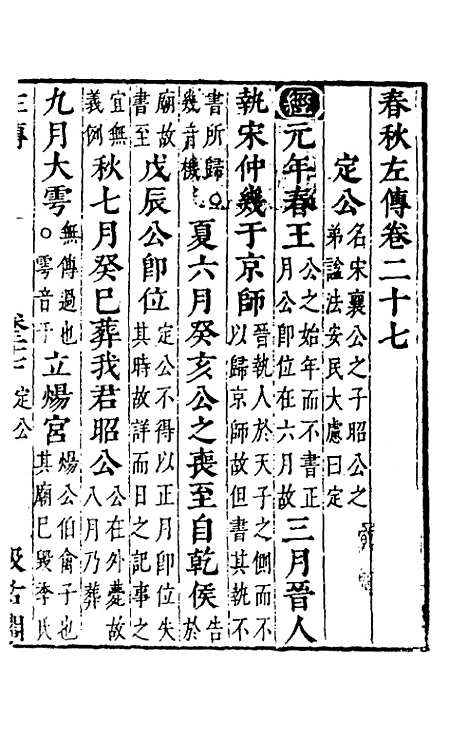 春秋左傳卷二十七
定公名宋襄公之子昭公之弟謚法安民大慮曰定
經元年春王公之始年而不書正月公卽位在六月故三月晉人
執宋仲幾于京師晉執人於天子之側而不以歸京師故但書其執不
書所歸○幾音機夏六月癸亥公之喪至自乾侯告於
廟故書至戊辰公卽位定公不得以正月卽位失其時故詳而日之記事之
宜無義例秋七月癸巳葬我君昭公公在外薨故八月乃葬
九月大雩無傳過也○雩音于立煬宮煬公伯禽子也其廟已毀季氏
定公